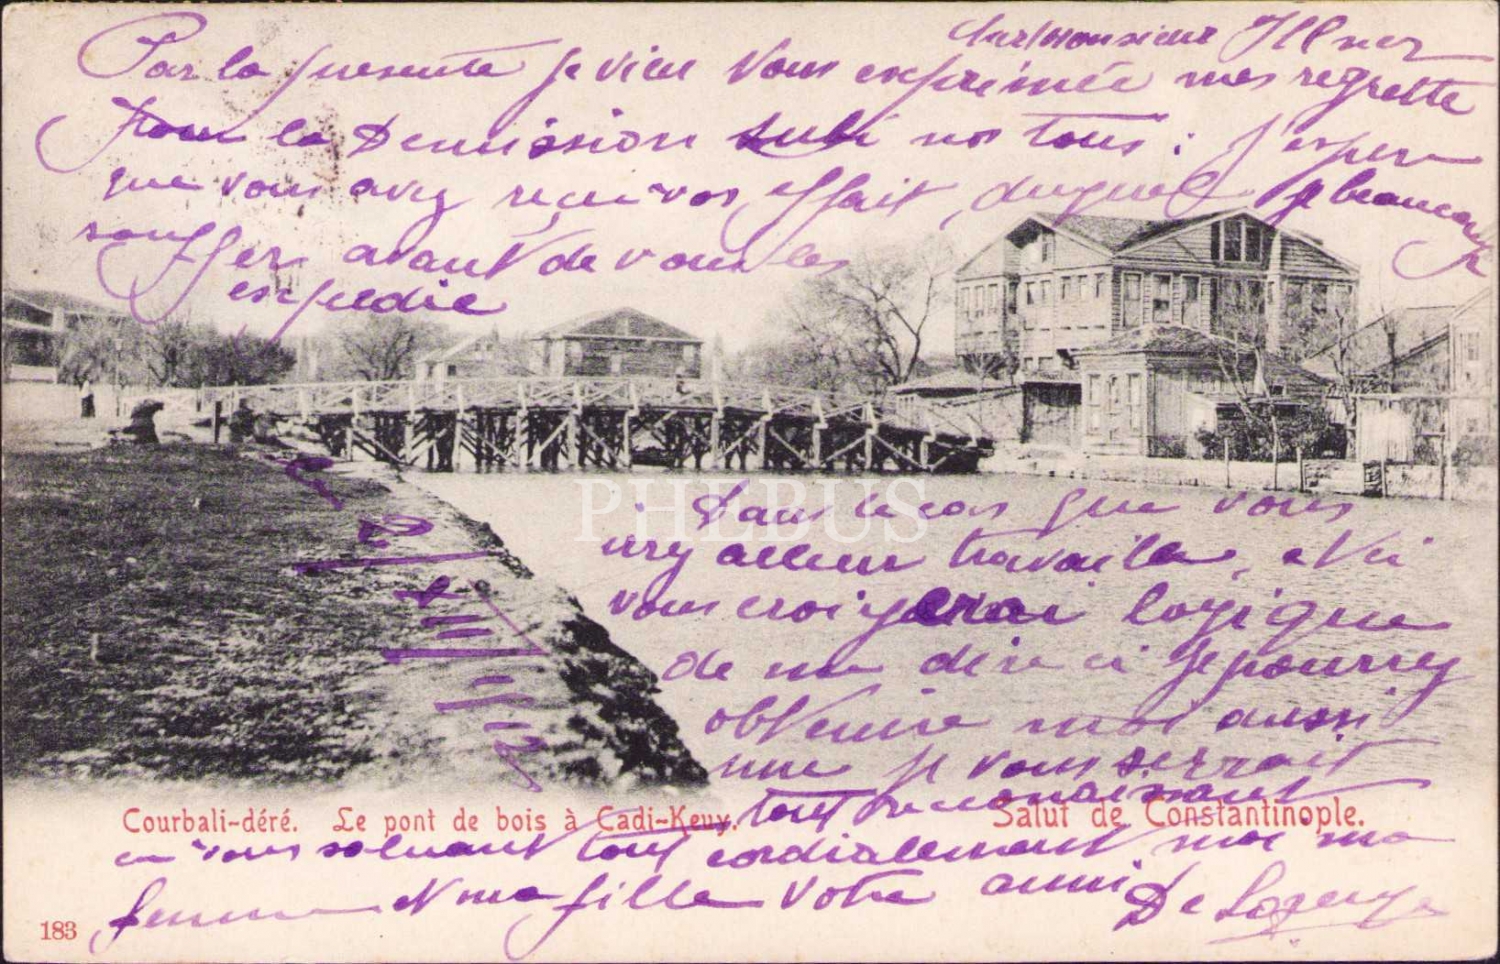 cher monsieur Illner
Par la presente je vien vous exprimée mes regrette
pour la Demission subi nos tous : j'esper
que vous avez reçu vos effait, duquel j beaucoup
souffer avant de vous les
expedie
PHEBUS
Dans le cas que vous
irez alleur travailler, et si
vous croiyerai logique
de me dire si je pourrey
obtenire moi aussi
une je vous serrait
tout reconaissant
Courbali-déré. Le pont de bois à Cadi-Keuy. Salut de Constantinople.
en vous saluant tout cordialement moi ma
femme et ma fille votre ami
De
183